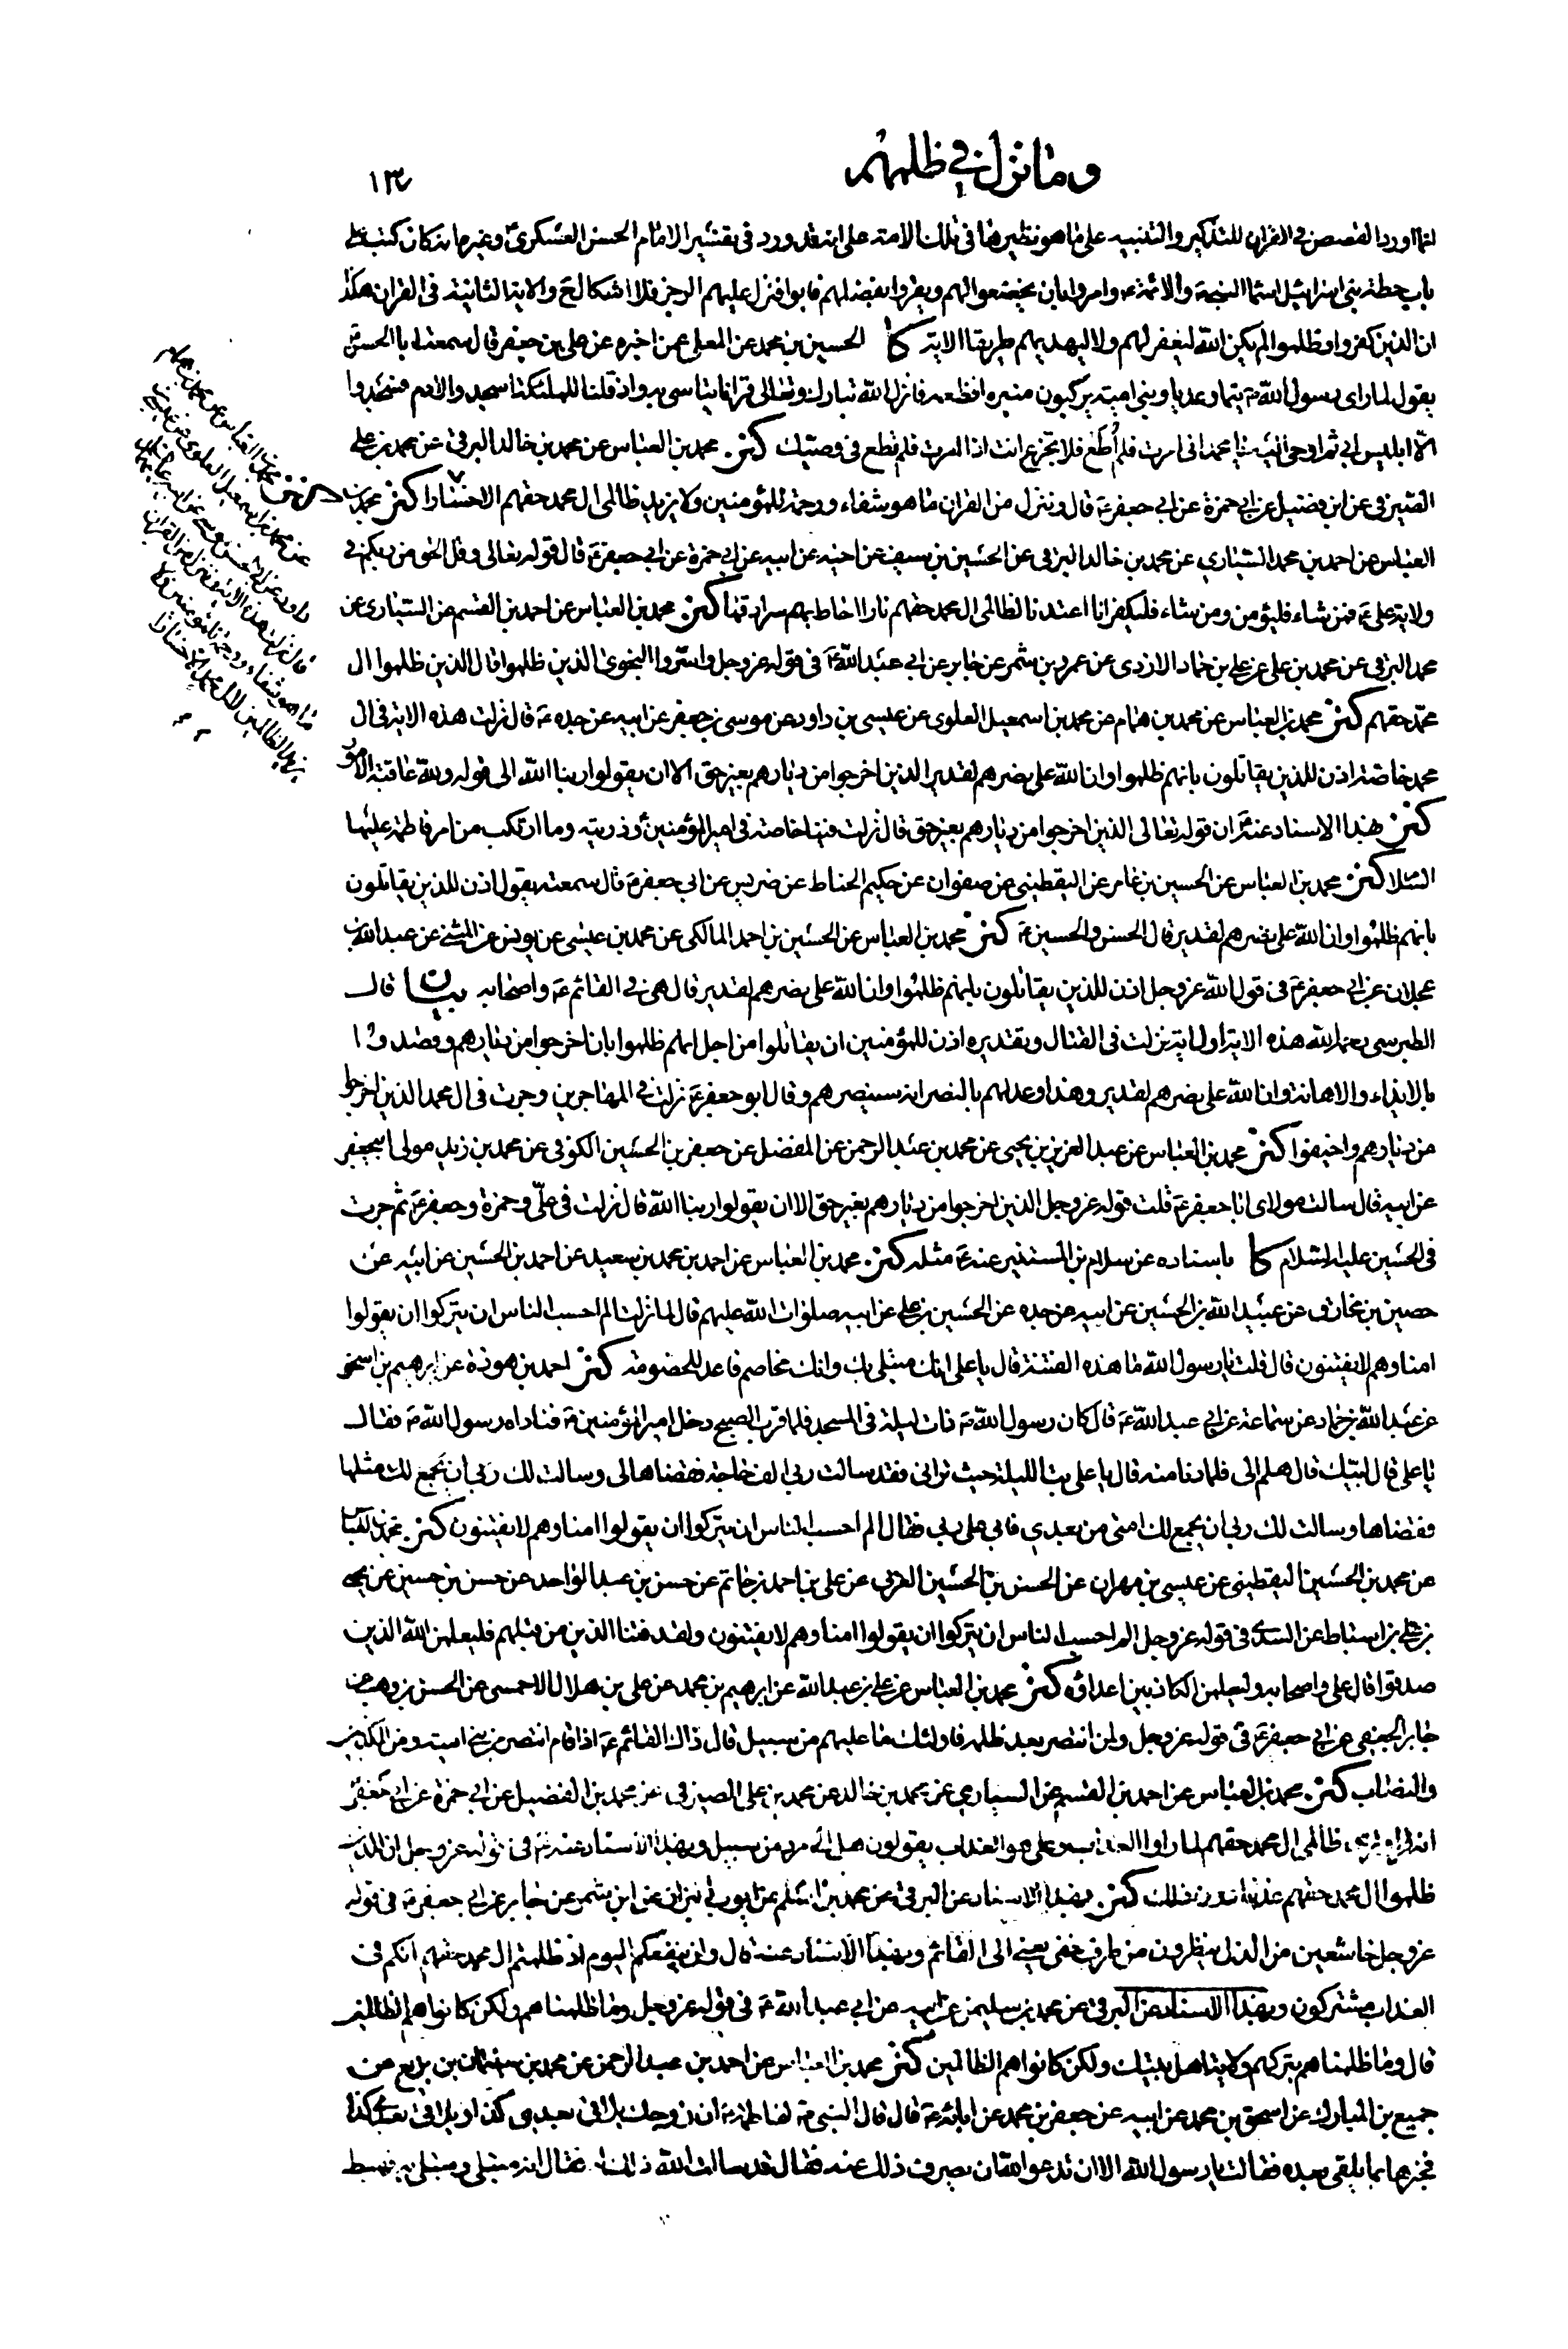 وما نزل في ظلمهم
١٣٠
انما اورد القصص في القران للتذكير والتنبيه على ما هو نظيرها في تلك الامة على انه قد ورد في تفسير الامام الحسن العسكري وغيره انه كان كتب على
باب حطة بني اسرائيل اسماء النبي والائمة ع وامروا بان يخضعوا لهم ويقروا بفضلهم فابوا فنزل عليهم الرجز فلا اشكال ح والاية الثانية في القران هكذا
ان الذين كفروا وظلموا لم يكن الله ليغفر لهم ولا ليهديهم طريقا الاية كا الحسين بن محمد عن المعلى عمن اخبره عن علي بن جعفر قال سمعت ابا الحسن ع
يقول لما راى رسول الله ص تيما وعديا وبني امية يركبون منبره افظعه فانزل الله تبارك وتعالى قرانا يتاسى به واذ قلنا للملئكة اسجدوا لادم فسجدوا
الا ابليس ابى ثم اوحى اليه يا محمد اني امرت فلم اُطَع فلا تجزع انت اذا امرت فلم تطع في وصيك كنز محمد بن العباس عن محمد بن خالد البرقي عن محمد بن علي
الصيرفي عن ابن فضيل عن ابي حمزة عن ابي جعفر ع قال وننزل من القران ما هو شفاء ورحمة للمؤمنين ولا يزيد ظالمي ال محمد حقهم الا خسارا كنز محمد بن
العباس عن احمد بن محمد السياري عن محمد بن خالد البرقي عن الحسين بن سيف عن اخيه عن ابيه عن ابي حمزة عن ابي جعفر ع قال قوله تعالى وقل الحق من ربكم في
ولاية علي ع فمن شاء فليؤمن ومن شاء فليكفر انا اعتدنا لظالمي ال محمد حقهم نارا احاط بهم سرادقها كنز محمد بن العباس عن احمد بن القسم عن السياري عن
محمد البرقي عن محمد بن علي عن علي بن حماد الازدي عن عمرو بن شمر عن جابر عن ابي عبد الله ع في قوله عز وجل واسروا النجوى الذين ظلموا قال الذين ظلموا ال
محمد حقهم كنز محمد بن العباس عن محمد بن همام عن محمد بن اسمعيل العلوي عن عيسى بن داود عن موسى بن جعفر عن ابيه عن جده ع قال نزلت هذه الاية في ال
محمد خاصة اذن للذين يقاتلون بانهم ظلموا وان الله على نصرهم لقدير الذين اخرجوا من ديارهم بغير حق الا ان يقولوا ربنا الله الى قوله ولله عاقبة الامور
كنز بهذا الاسناد عنه ع ان قوله تعالى الذين اخرجوا من ديارهم بغير حق قال نزلت فينا خاصة في امير المؤمنين وذريته وما ارتكب من امر فاطمة عليها
السلام كنز محمد بن العباس عن الحسين بن عامر عن اليقطيني عن صفوان عن حكيم الحناط عن ضريس عن ابي جعفر ع قال سمعته يقول اذن للذين يقاتلون
بانهم ظلموا وان الله على نصرهم لقدير قال الحسن والحسين ع كنز محمد بن العباس عن الحسين بن احمد المالكي عن محمد بن عيسى عن يونس عن المثنى عن عبد الله بن
عجلان عن ابي جعفر ع في قول الله عز وجل اذن للذين يقاتلون بانهم ظلموا وان الله على نصرهم لقدير قال هي في القائم ع واصحابه بيان قال
الطبرسي رحمه الله هذه الاية اول اية نزلت في القتال وتقديره اذن للمؤمنين ان يقاتلوا من اجل انهم ظلموا بان اخرجوا من ديارهم وقصدوا
بالايذاء والاهانة وان الله على نصرهم لقدير وهذا وعد لهم بالنصر انه سينصرهم وقال ابو جعفر ع نزلت في المهاجرين وجرت في ال محمد الذين اخرجوا
من ديارهم واخيفوا كنز محمد بن العباس عن عبد العزيز بن يحيى عن محمد بن عبد الرحمن عن المفضل عن جعفر بن الحسين الكوفي عن محمد بن زيد مولى ابي جعفر
عن ابيه قال سالت مولاي ابا جعفر ع قلت قوله عز وجل الذين اخرجوا من ديارهم بغير حق الا ان يقولوا ربنا الله قال نزلت في علي وحمزة وجعفر ع ثم جرت
في الحسين عليه السلام كا باسناده عن سلام بن المستنير عنه ع مثله كنز محمد بن العباس عن احمد بن محمد بن سعيد عن احمد بن الحسين عن ابيه عن
حصين بن مخارق عن عبيد الله بن الحسين عن ابيه عن جده عن الحسين بن علي عن ابيه صلوات الله عليهم قال لما نزلت الم احسب الناس ان يتركوا ان يقولوا
امنا وهم لا يفتنون قال قلت يا رسول الله ما هذه الفتنة قال يا علي انك مبتلى بك وانك مخاصم فاعد للخصومة كنز احمد بن هوذة عن ابرهيم بن اسحق
عن عبد الله بن حماد عن سماعة عن ابي عبد الله ع قال كان رسول الله ص ذات ليلة في المسجد فلما قرب الصبح دخل امير المؤمنين ع فناداه رسول الله ص فقال
يا علي قال لبيك قال هلم الي فلما دنا منه قال يا علي بت الليلة حيث تراني فقد سالت ربي الف حاجة فقضاها لي وسالت لك ربي ان يجمع لك مثلها
فقضاها وسالت لك ربي ان يجمع لك امتي من بعدي فابى علي ربي فقال الم احسب الناس ان يتركوا ان يقولوا امنا وهم لا يفتنون كنز محمد بن العباس
عن محمد بن الحسين اليقطيني عن عيسى بن مهران عن الحسن بن الحسين العرني عن علي بن احمد بن حاتم عن حسن بن عبد الواحد عن حسن بن حسين عن يحيى
بن علي بن اسباط عن السدي في قوله عز وجل الم احسب الناس ان يتركوا ان يقولوا امنا وهم لا يفتنون ولقد فتنا الذين من قبلهم فليعلمن الله الذين
صدقوا قال علي واصحابه وليعلمن الكاذبين اعداؤه كنز محمد بن العباس عن علي بن عبد الله عن ابرهيم بن محمد عن علي بن هلال الاحمسي عن الحسن بن وهب عن
جابر الجعفي عن ابي جعفر ع في قوله عز وجل ولمن انتصر بعد ظلمه فاولئك ما عليهم من سبيل قال ذاك القائم ع اذا قام انتصر من بني امية ومن المكذبين
والنصاب كنز محمد بن العباس عن احمد بن القسم عن السياري عن محمد بن خالد عن محمد بن علي الصيرفي عن محمد بن الفضيل عن ابي حمزة عن ابي جعفر
انه قرا وترى ظالمي ال محمد حقهم لما راوا العذاب وعلي هو العذاب يقولون هل الى مرد من سبيل وبهذا الاسناد عنه ع في قوله عز وجل ان الذين
ظلموا ال محمد حقهم عذابا دون ذلك كنز بهذا الاسناد عن البرقي عن محمد بن اسلم عن ايوب البزاز عن ابن شمر عن جابر عن ابي جعفر ع في قوله
عز وجل خاشعين من الذل ينظرون من طرف خفي يعني الى القائم وبهذا الاسناد عنه قال ولن ينفعكم اليوم اذ ظلمتم ال محمد حقهم انكم في
العذاب مشتركون وبهذا الاسناد عن البرقي عن محمد بن سليمن عن ابيه عن ابي عبد الله ع في قوله عز وجل وما ظلمناهم ولكن كانوا هم الظالمين
قال وما ظلمناهم بتركهم ولاية اهل بيتك ولكن كانوا هم الظالمين كنز محمد بن العباس عن احمد بن عبد الرحمن عن محمد بن سليمان بن بزيع عن
جميع بن المبارك عن اسحق بن محمد عن ابيه عن جعفر بن محمد عن ابائه ع قال قال النبي ص لفاطمة ع ان زوجك يلاقي بعدي كذا ويلاقي بعدي كذا
فخبرها بما يلقى بعده فقالت يا رسول الله الا ان تدعو الله ان يصرف ذلك عنه فقال قد سالت الله ذلك فقال انه مبتلى ومبتلى به فهبط
محمد بن العباس عن محمد بن همام
عن محمد بن اسمعيل العلوي عن عيسى بن
داود عن ابي الحسن موسى عن ابيه ع
قال نزلت هذه الاية وننزل من القران
ما هو شفاء ورحمة للمؤمنين ولا
يزيد الظالمين لال محمد الا خسارا